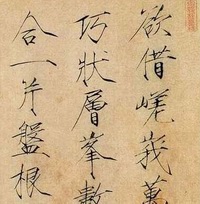 欲借嵯峩萬
巧狀層峯數
合一片盤根